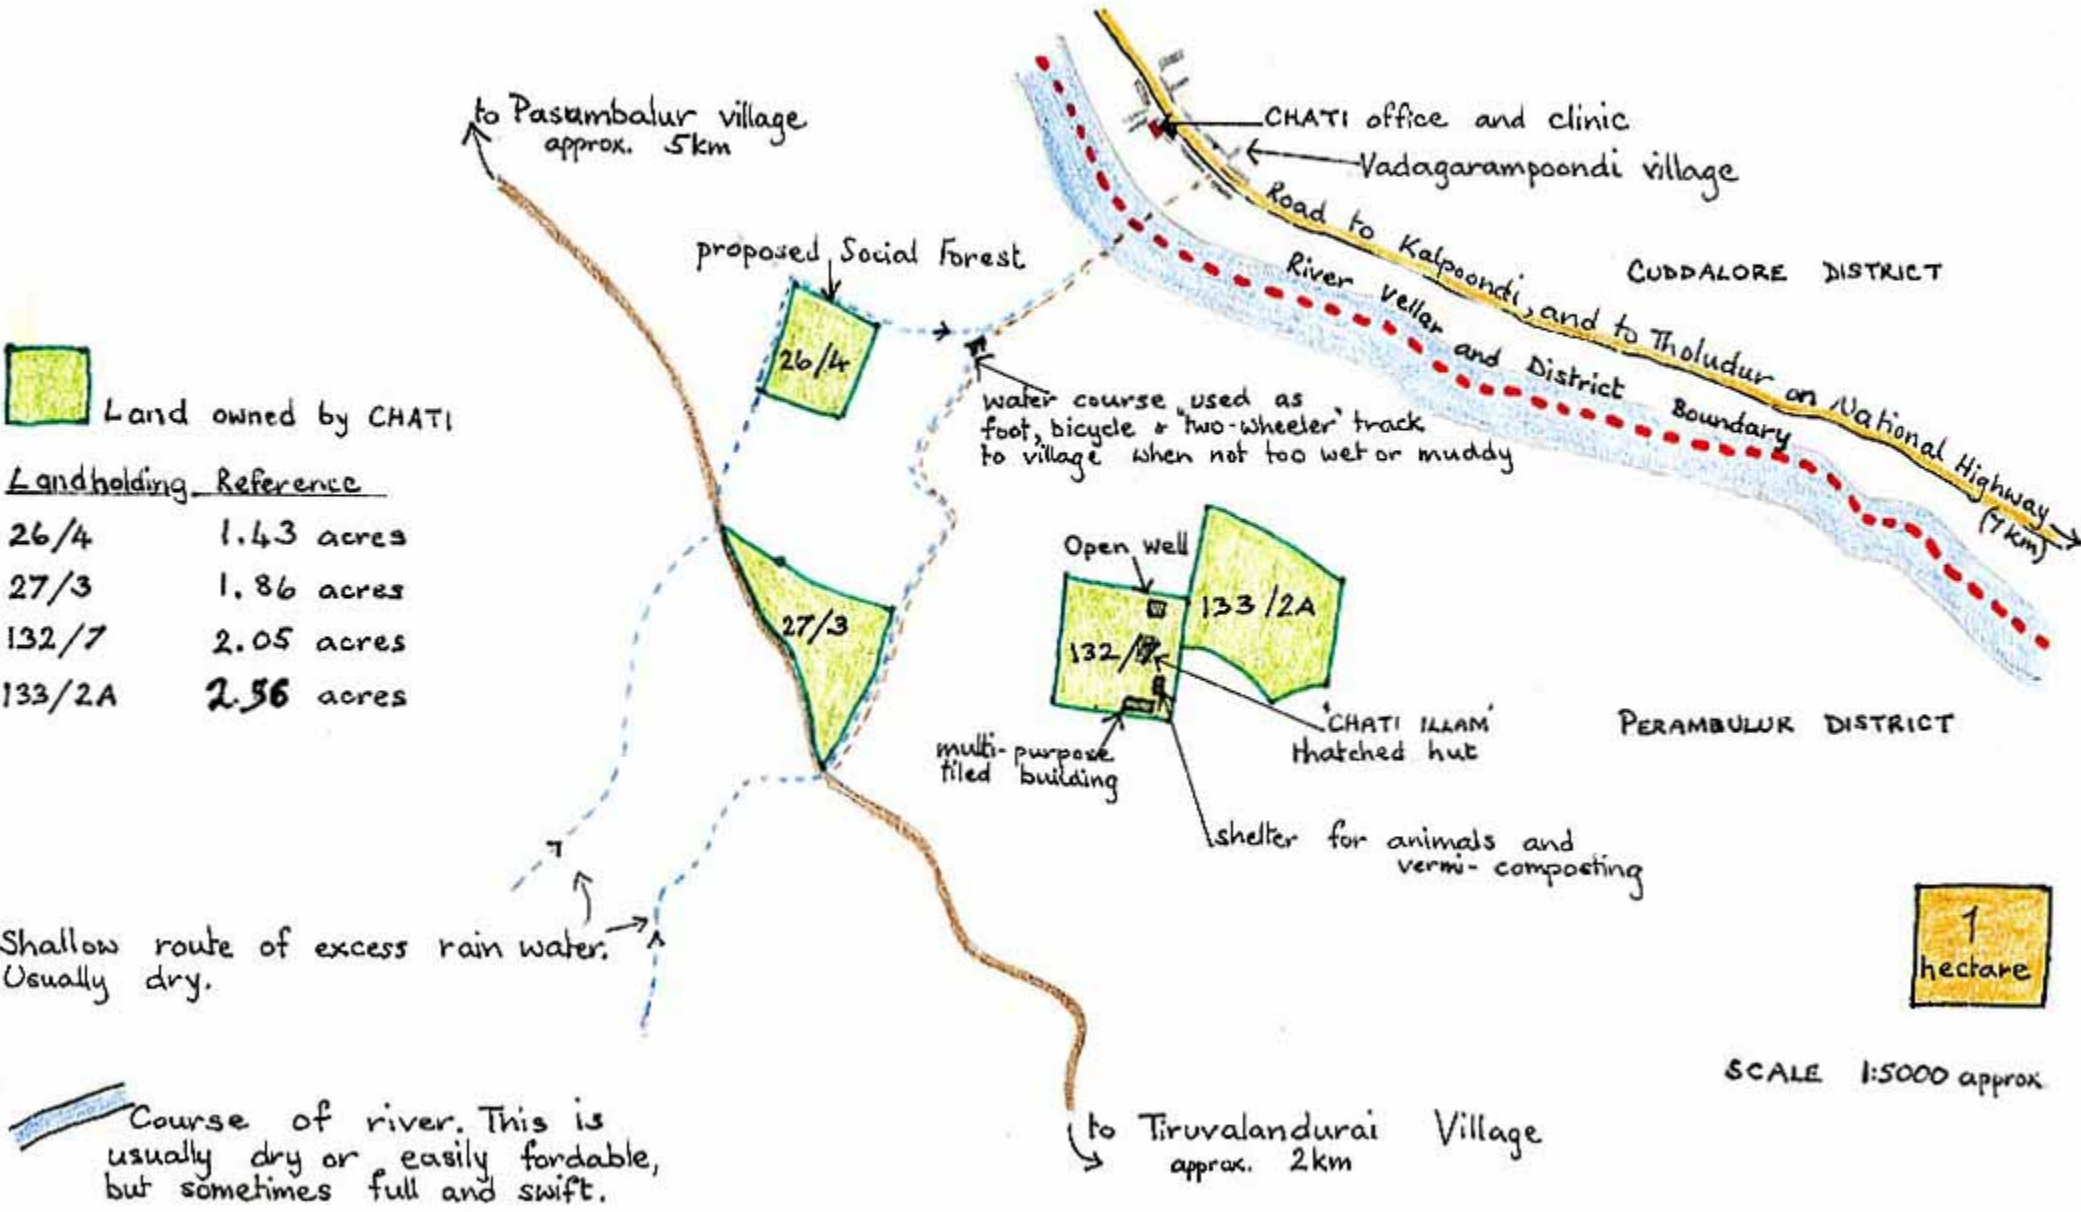 to Pasumbalur village
approx. 5km
CHATI office and clinic
Vadagarampoondi village
Road to Kalpoondi, and to Tholudur on National Highway
(7km)
River Vellar and District Boundary
CUDDALORE DISTRICT
proposed Social Forest
26/4
water course used as
foot, bicycle & "two-wheeler" track
to village when not too wet or muddy
Land owned by CHATI
Landholding Reference
26/4 1.43 acres
27/3 1.86 acres
132/7 2.05 acres
133/2A 2.56 acres
27/3
Open well
133/2A
132/7
'CHATI ILLAM'
thatched hut
multi-purpose
tiled building
shelter for animals and
vermi-composting
PERAMBULUR DISTRICT
Shallow route of excess rain water.
Usually dry.
1
hectare
SCALE 1:5000 approx
Course of river. This is
usually dry or easily fordable,
but sometimes full and swift.
to Tiruvalandurai Village
approx. 2km